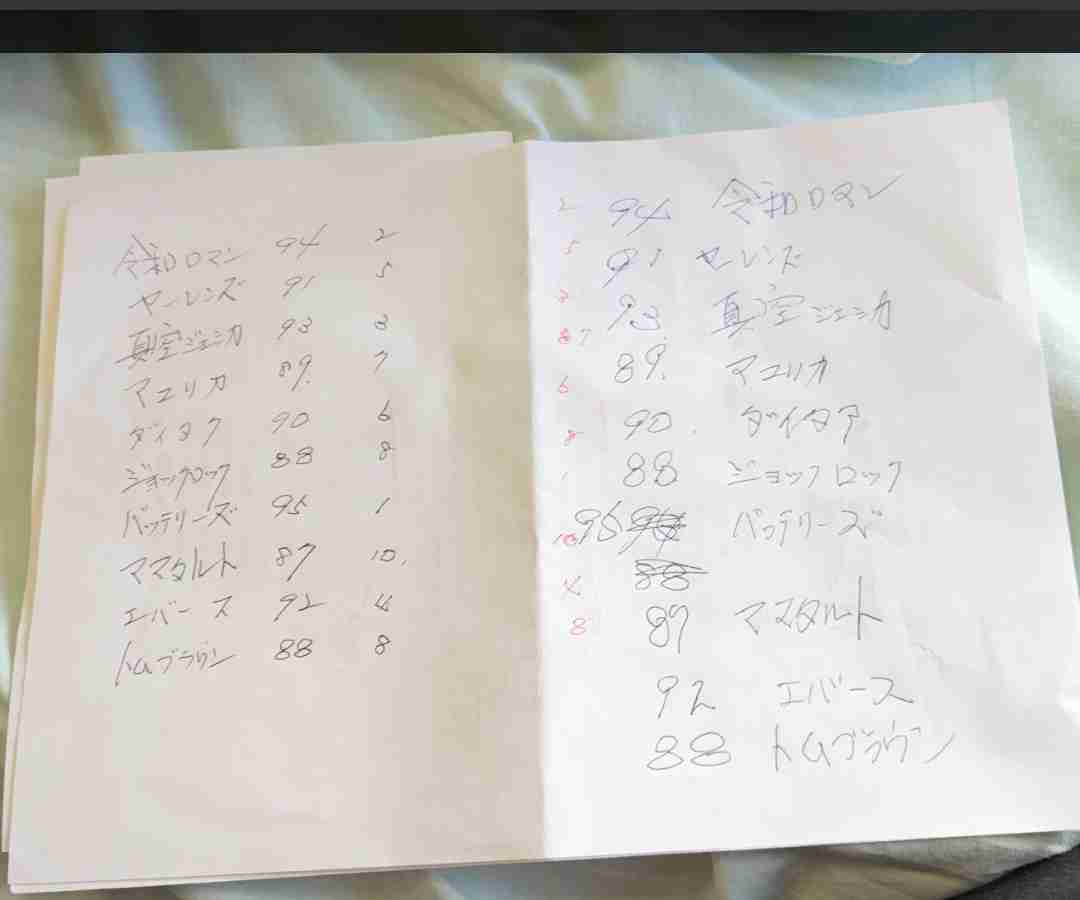 令和ロマン 94 2
ヤーレンズ 91 5
真空ジェシカ 93 3
マユリカ 89. 7
ダイタク 90 6
ジョックロック 88 8
バッテリーズ 95 1
ママタルト 87 10.
エバース 92 4
トムブラウン 88 8
2 94 令和ロマン
5 91 ヤーレンズ
3 93. 真空ジェシカ
7 89. マユリカ
6 90. ダイタク
8 88 ジョックロック
1 95 バッテリーズ
10 88
4 87 ママタルト
8
92 エバース
88 トムブラウン